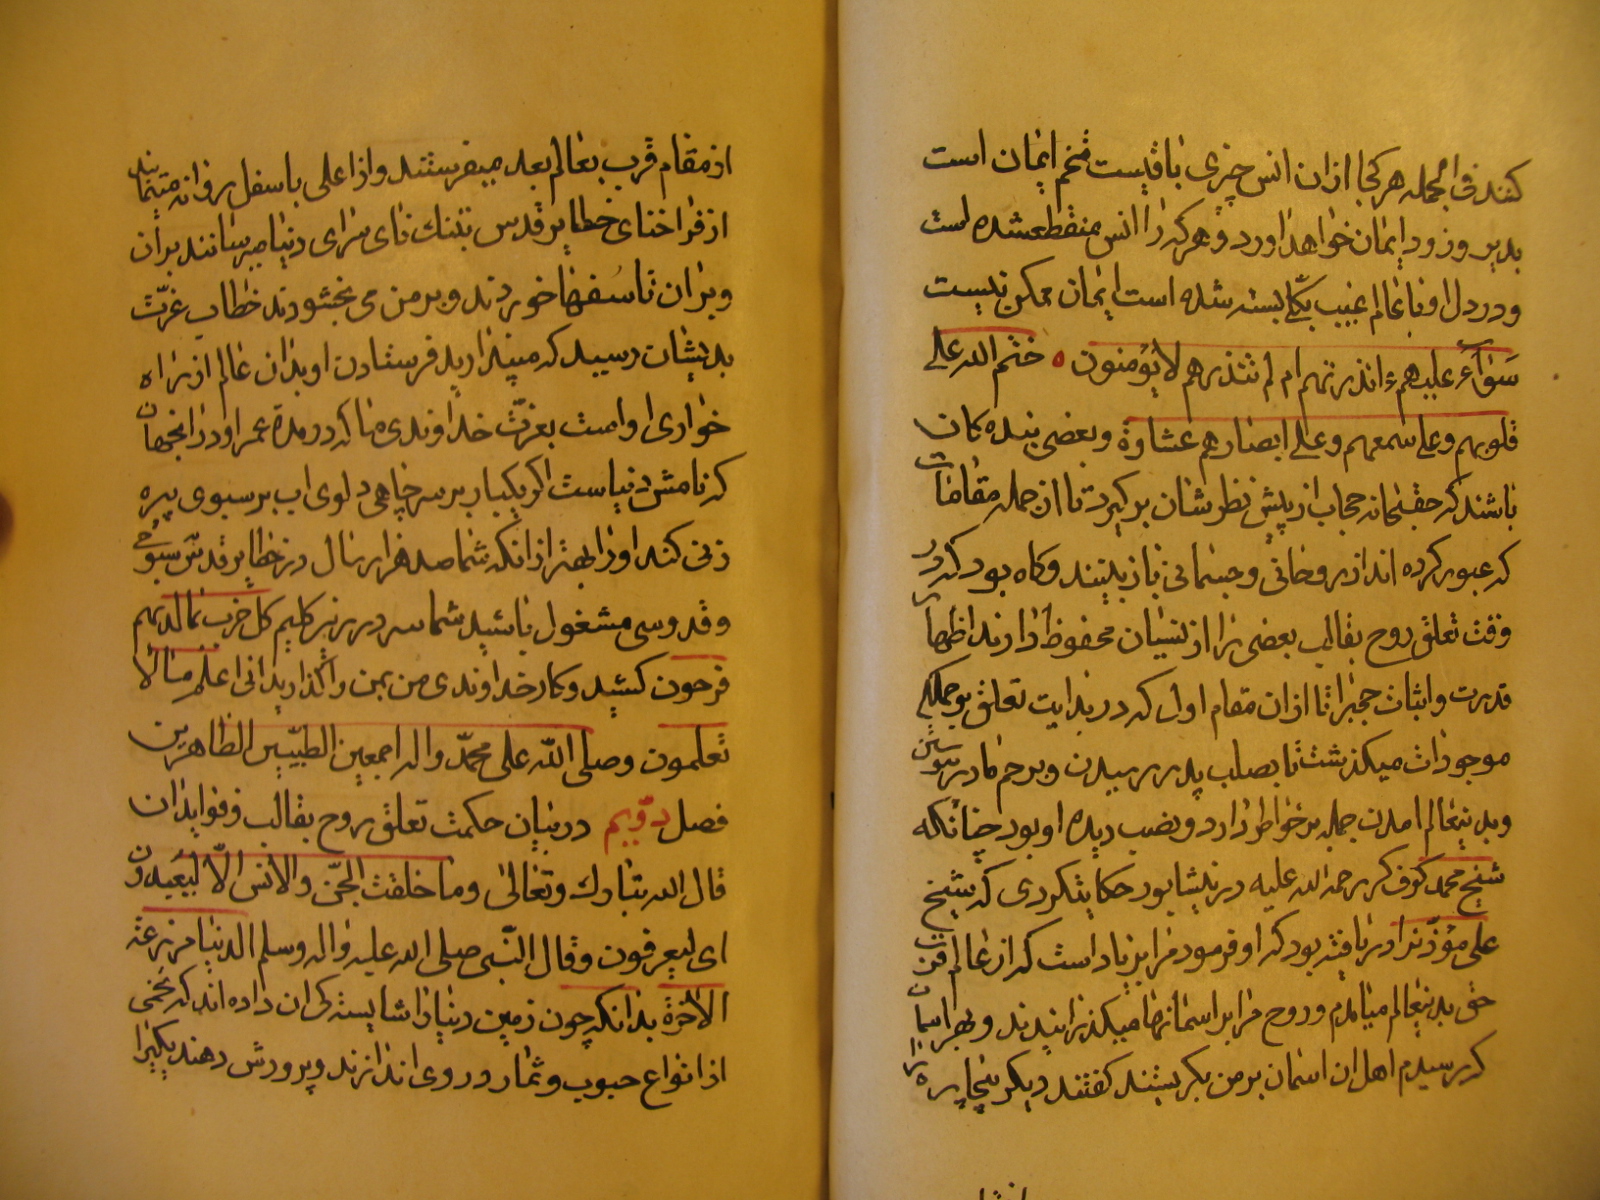 کنند فی الجمله هر کجا ازان انس چیزی باقیست تخم ایمان است
بدیر و زود ایمان خواهد اورد و هر که را انس منقطع شده است
و در دل او با عالم غیب بکلی بسته شده است ایمان ممکن نیست
سَوٰآءٌ علیهم ءانذرتهم ام لم تنذرهم لا یؤمنون ه ختم الله علی
قلوبهم و علی سمعهم و علی ابصارهم غشاوة و بعضی بنده کان
باشند که حقتعالی حجاب از پیش نظر شان بر گیرد تا ان جمله مقامات
که عبور کرده اند از روحانی و جسمانی باز بینند و کاه بود که در
وقت تعلق روح بقالب بعضی را از نسیان محفوظ دارند اظهار
قدرت و اثبات حجت را تا ازان مقام اول که در بدایت تعلق بوجملکی
موجودات میکذشت تا بصلب پدر رسیدن و برحم مادر پیوستن
و بدینعالم امدن جمله بر خواطر دارد و نصب دیده او بود چنانکه
شیخ محمد کوف کر رحمة الله علیه در نیشابور حکایت کردی که شیخ
علی مؤذن را دریافته بود که او فرمود مرا بر یاد است که از عالم قرب
حق بدینعالم میامدم و روح مرا بر اسمانها میکذرانیدند و بهر اسمان
که رسیدم اهل ان اسمان بر من بکریستند کفتند دیکر بیچاره را
از مقام قرب بعالم بعد میفرستند و از اعلی باسفل روانه مینمایند
از فراخنای خطایر قدس بتنك نای سرای دنیا میرسانند بران
و بران تاسفها خوردند و بر من می بخشودند خطاب عزّت
بدیشان رسید که مپندارید فرستادن او بدان عالم از راه
خواری اوست بعزّت خداوندی ما که در مدة عمر او در انجهان
که نامش دنیاست اکر یکبار بر سر چاهی دلوی اب بر سبوی پیره
زنی کند او را بهتر از انکه شما صد هزار سال در خطایر قدس سبّوحی
و قدوسی مشغول باشید شما سر در زیر کلیم کل حزب بما لدیهم
فرحون کشید و کار خداوندی من بمن واکذارید انی اعلم ما لا
تعلمون و صلی اللّه علی محمّد و اله اجمعین الطیّبین الطاهرین
فصل دوّیم در بیان حکمت تعلق روح بقالب و فواید ان
قال الله تبارك و تعالی و ما خلقت الجنّ و الانس الّا لیعبدون
ای لیعرفون و قال النّبی صلی الله علیه و اله و سلم الدنیا مزرعة
الآخرة بدانکه چون زمین دنیا را شایسته کی ان داده اند که تخمی
از انواع حبوب و ثمار در وی اندازند و پرورش دهند یکیرا